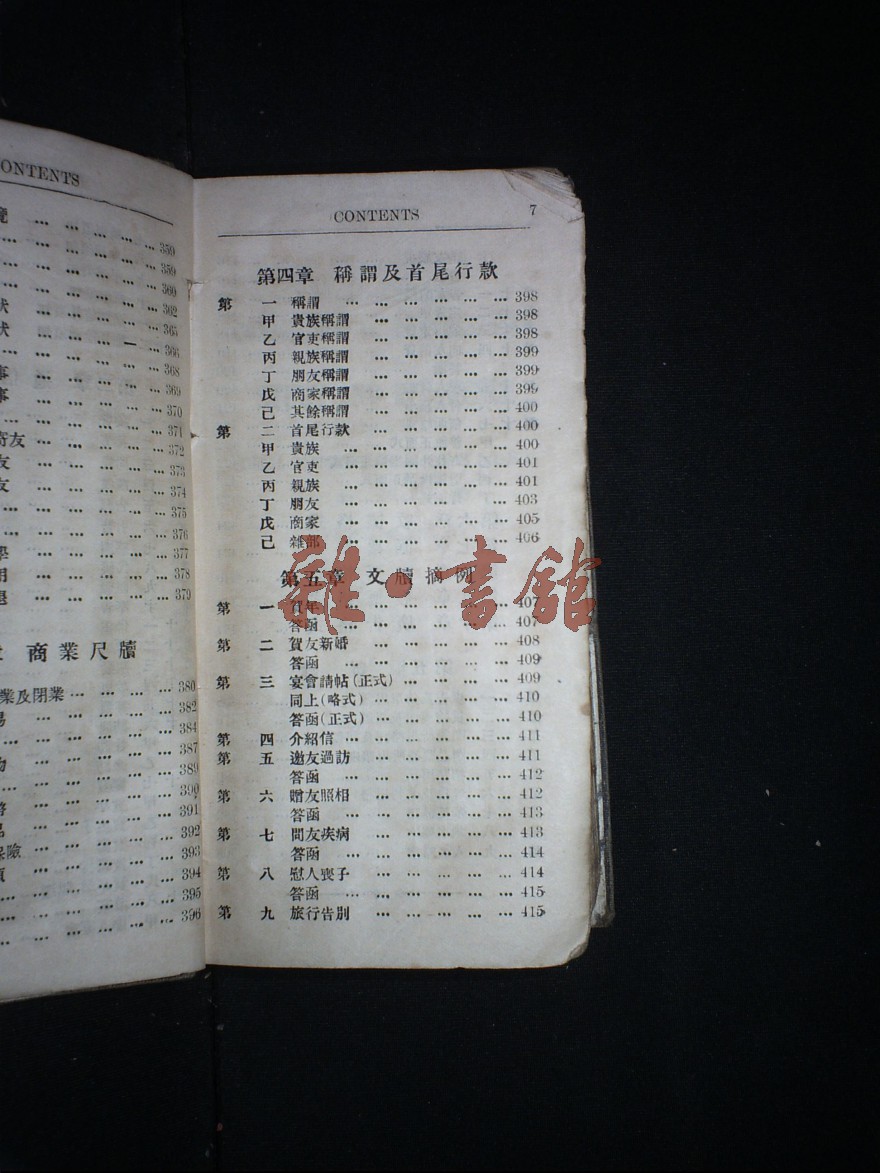 CONTENTS
359
359
360
362
365
366
368
369
370
371
友 372
友 373
友 374
375
376
377
378
379
商業尺牘
業及閉業 380
382
384
387
389
390
391
392
險 393
394
395
396
CONTENTS 7
第四章 稱謂及首尾行款
第一 稱謂 398
甲 貴族稱謂 398
乙 官吏稱謂 398
丙 親族稱謂 399
丁 朋友稱謂 399
戊 商家稱謂 399
己 其餘稱謂 400
第二 首尾行款 400
甲 貴族 400
乙 官吏 401
丙 親族 401
丁 朋友 403
戊 商家 405
己 雜部 406
第五章 文牘摘例
第一 賀年 407
答函 407
第二 賀友新婚 408
答函 409
第三 宴會請帖(正式) 409
同上(略式) 410
答函(正式) 410
第四 介紹信 411
第五 邀友過訪 411
答函 412
第六 贈友照相 412
答函 413
第七 問友疾病 413
答函 414
第八 慰人喪子 414
答函 415
第九 旅行告別 415
雜·書館